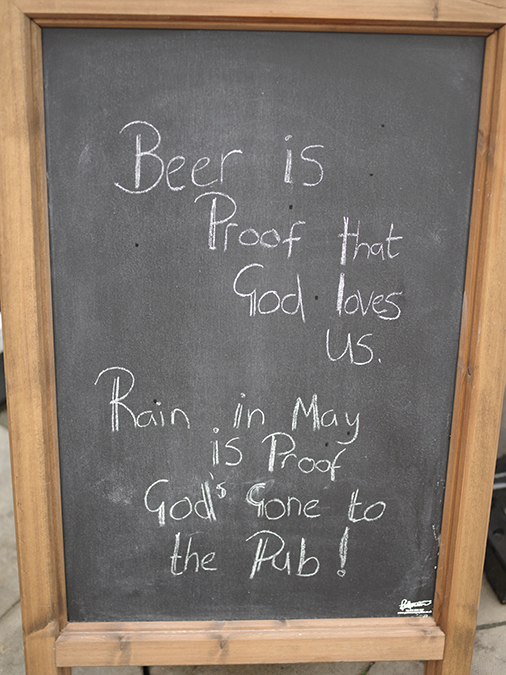 Beer is
Proof that
God loves
us.
Rain in May
is Proof
God's Gone to
the Pub!